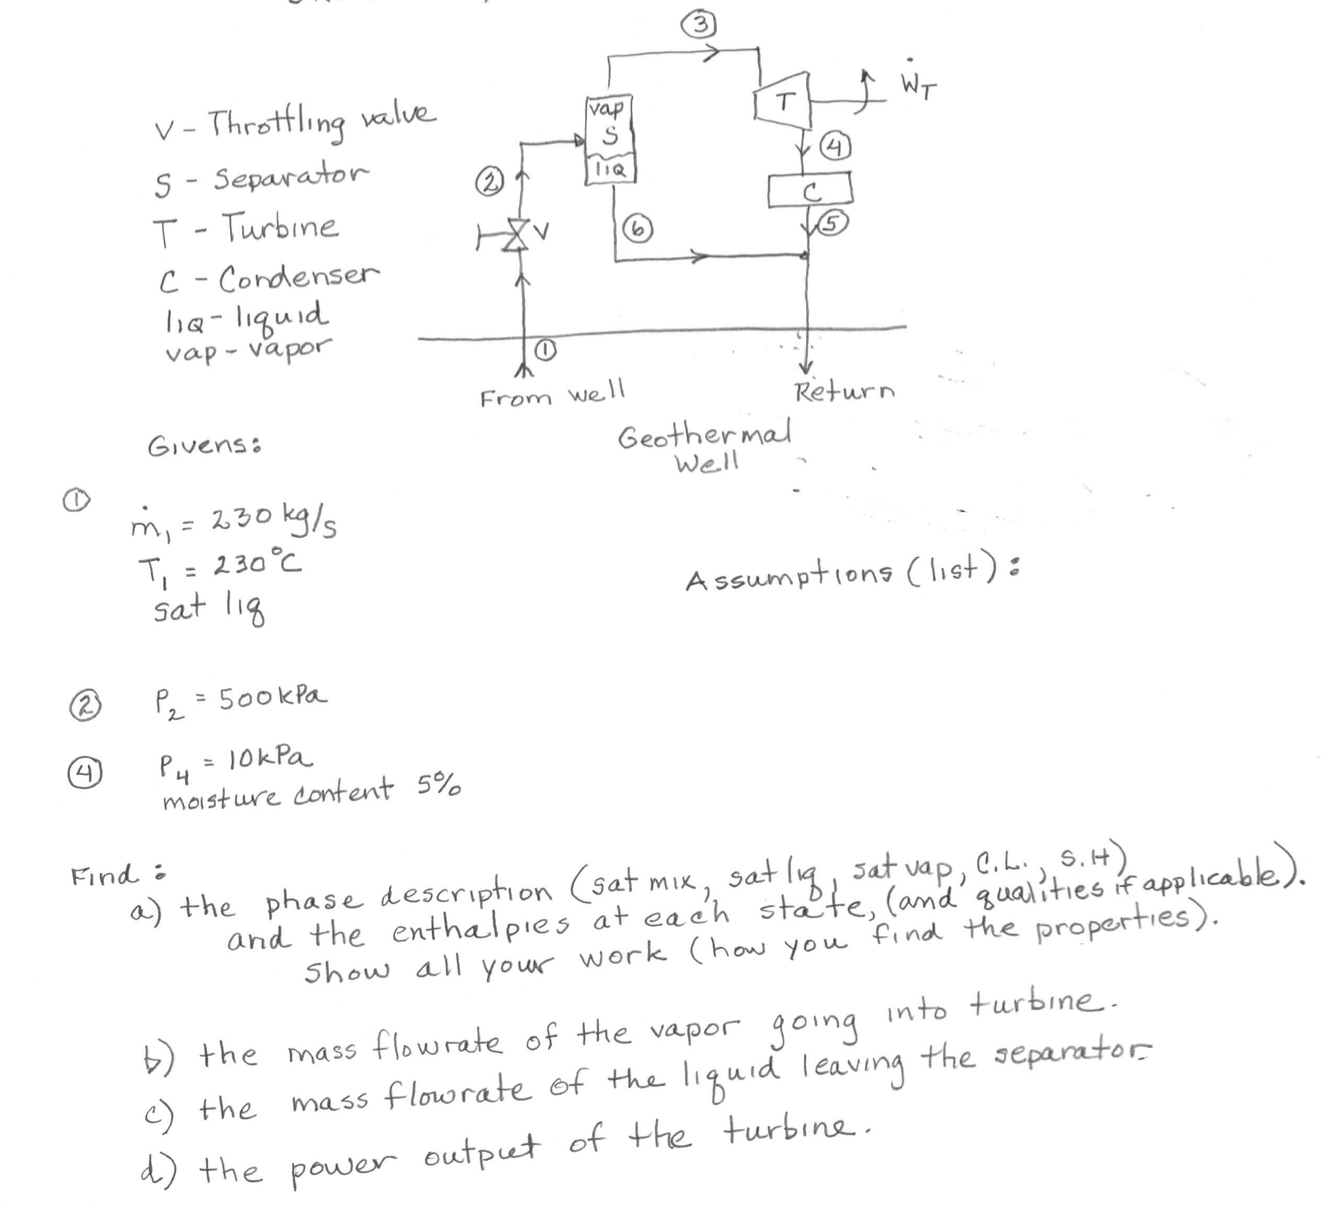 ③
V - Throttling valve
S - Separator
T - Turbine
C - Condenser
liq - liquid
vap - vapor
vap
S
liq
T
ẆT
④
C
⑤
②
V
⑥
①
From well
Return
Geothermal
Well
Givens:
①
ṁ₁ = 230 kg/s
T₁ = 230°C
sat liq
Assumptions (list):
② P₂ = 500kPa
④ P₄ = 10kPa
moisture content 5%
Find:
a) the phase description (sat mix, sat liq, sat vap, C.L., S.H)
and the enthalpies at each state, (and qualities if applicable).
Show all your work (how you find the properties).
b) the mass flowrate of the vapor going into turbine.
c) the mass flowrate of the liquid leaving the separator.
d) the power output of the turbine.